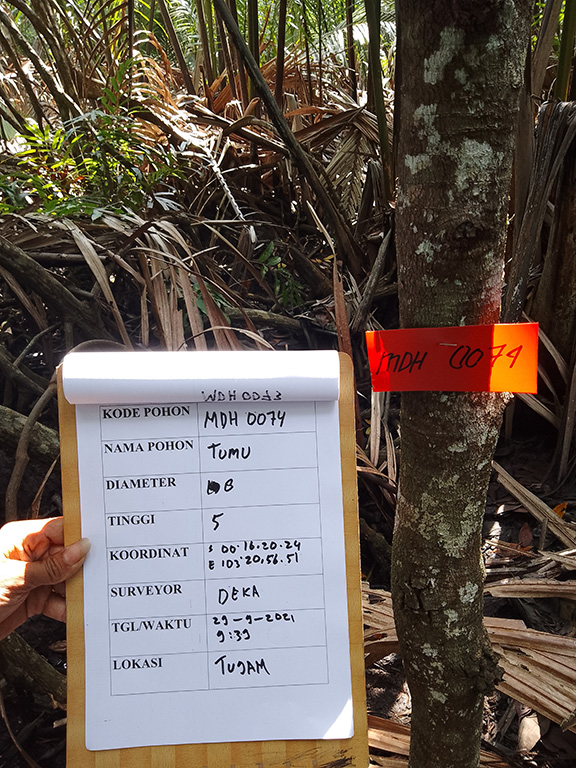 MDH 0073
KODE POHON MDH 0074
NAMA POHON TUMU
DIAMETER 8
TINGGI 5
KOORDINAT S 00.16.20.24
E 103.20.56.51
SURVEYOR DEKA
TGL/WAKTU 29-9-2021
9:39
LOKASI TUJAM
MDH 0074